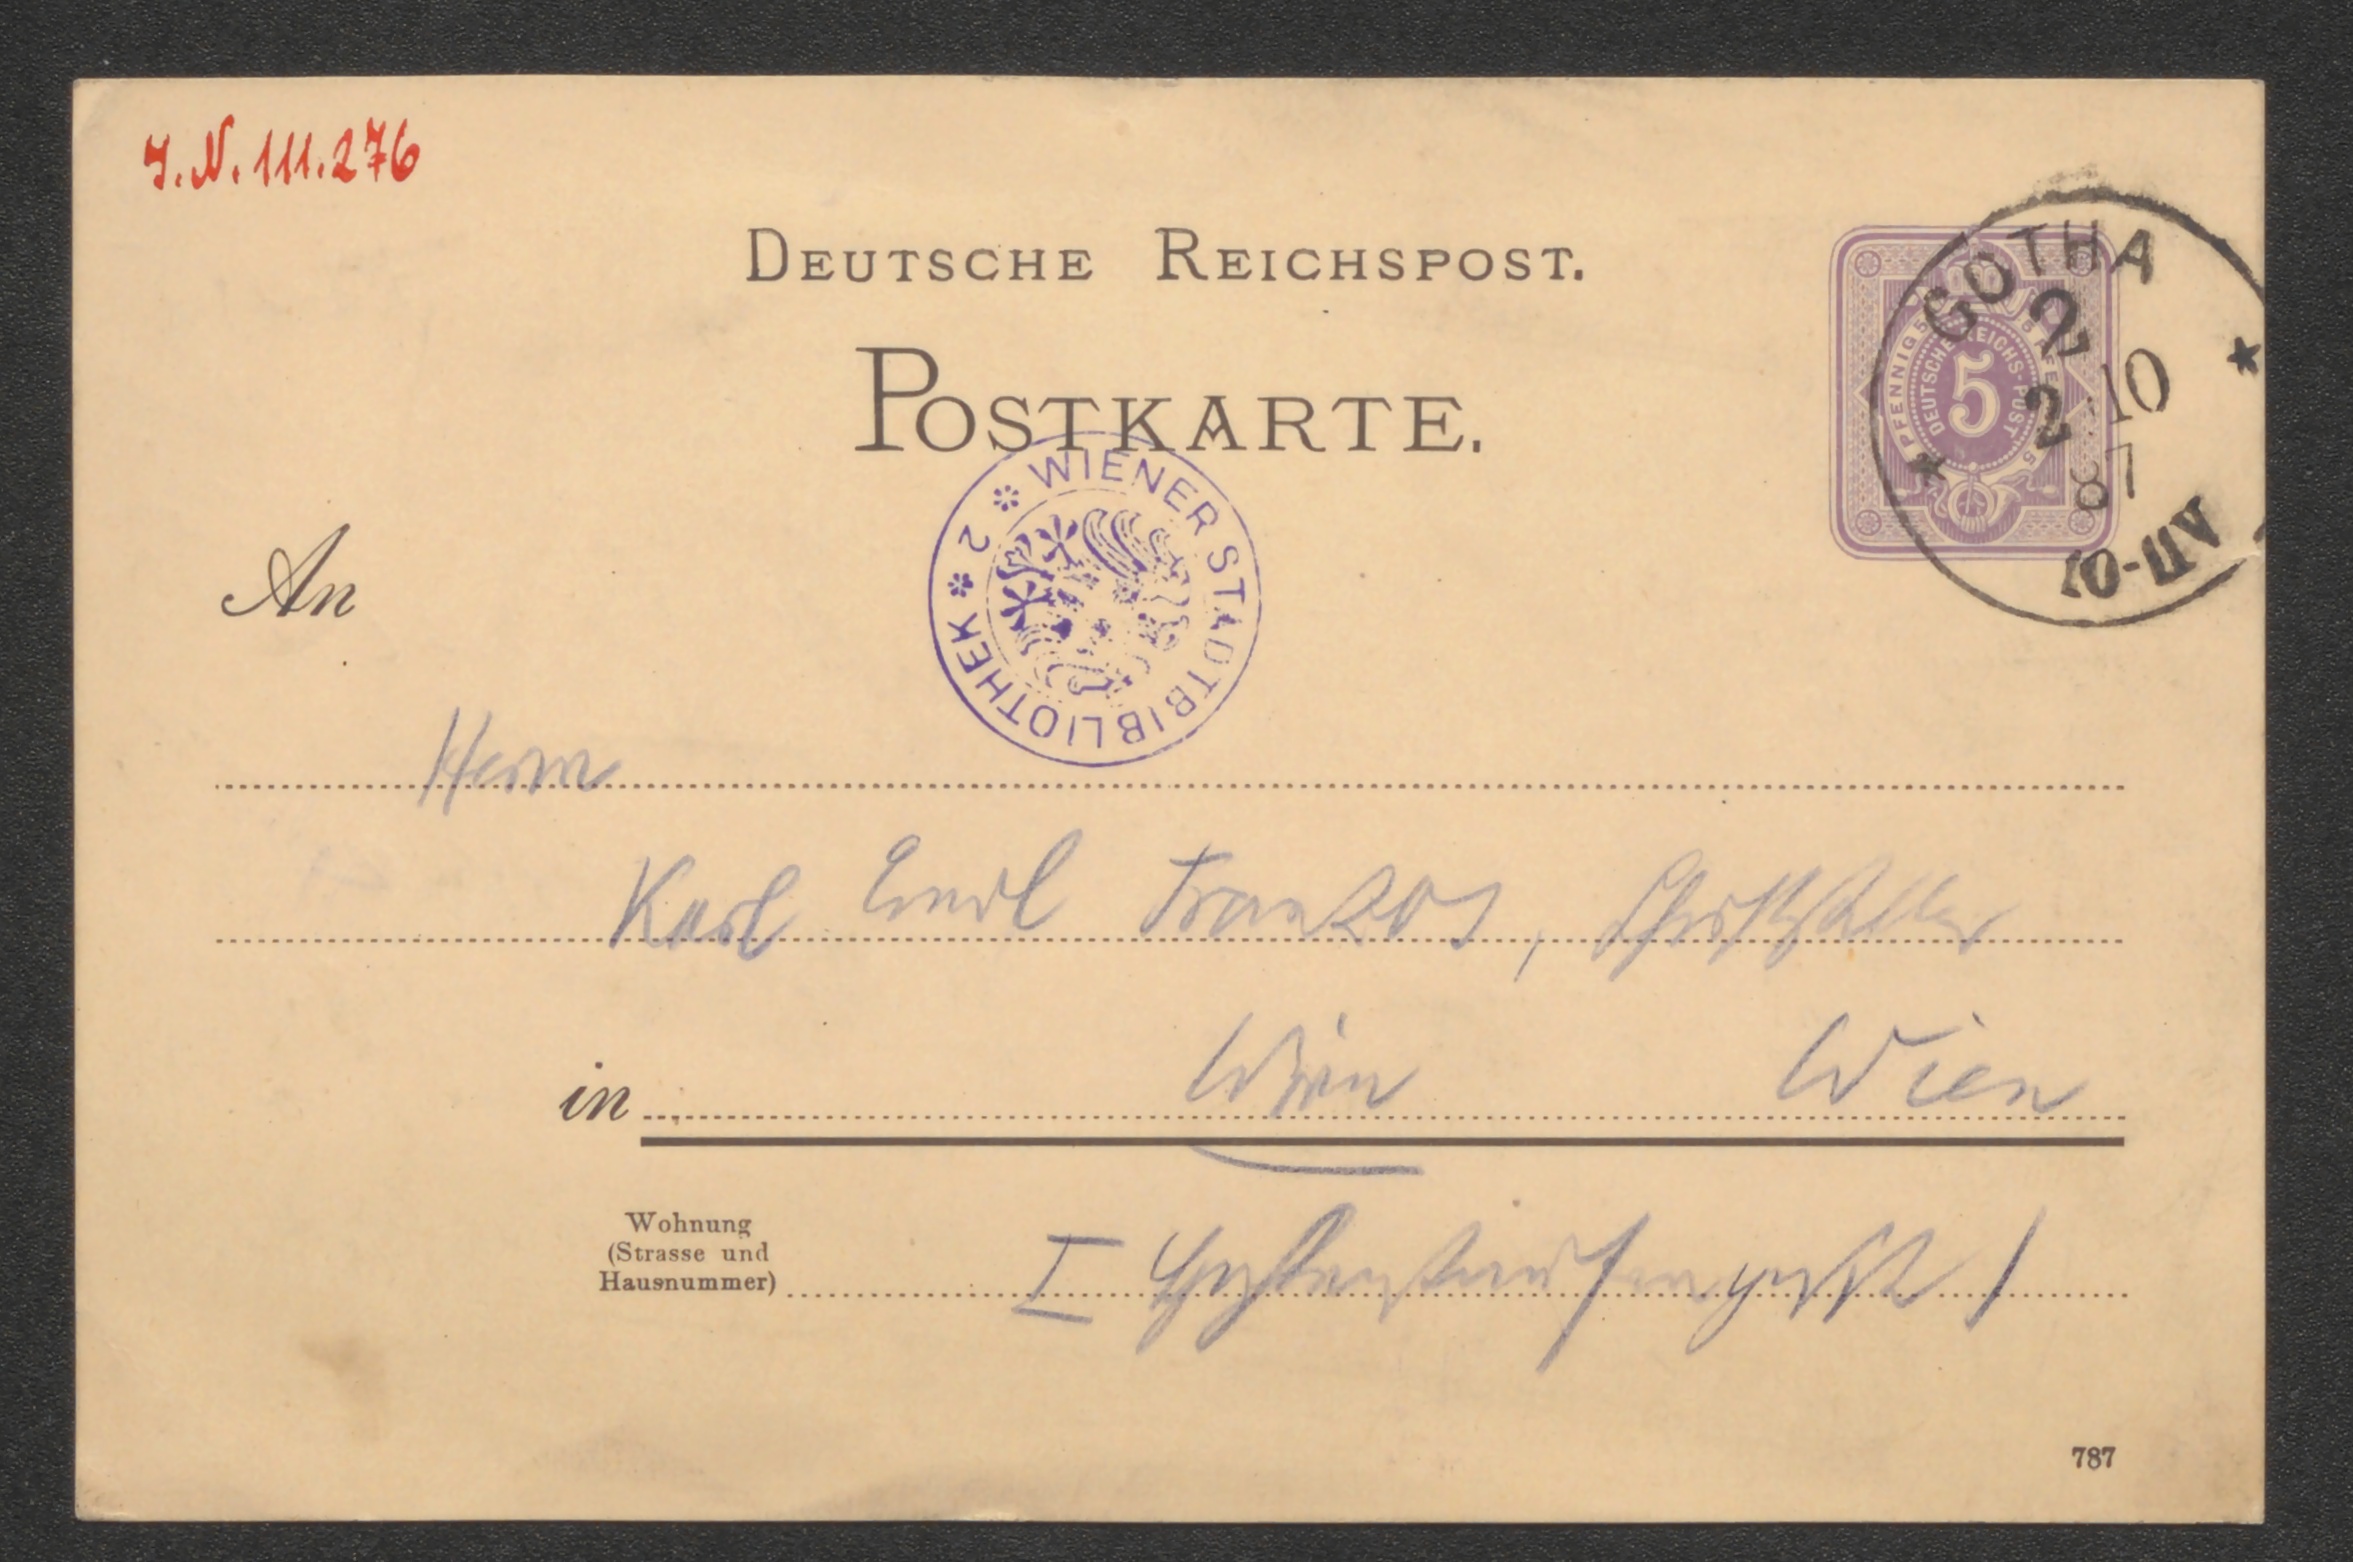 J.N. 111.276
DEUTSCHE REICHSPOST.
POSTKARTE.
PFENNIG 5
DEUTSCHE REICHS-POST
5
GOTHA
2
2 10
87
10-11 V
WIENER STADTBIBLIOTHEK 2
An
Herrn
Karl Emil Franzos, Schriftsteller
in Wien Wien
Wohnung
(Strasse und
Hausnummer)
I Hohenstaufengasse 1
787